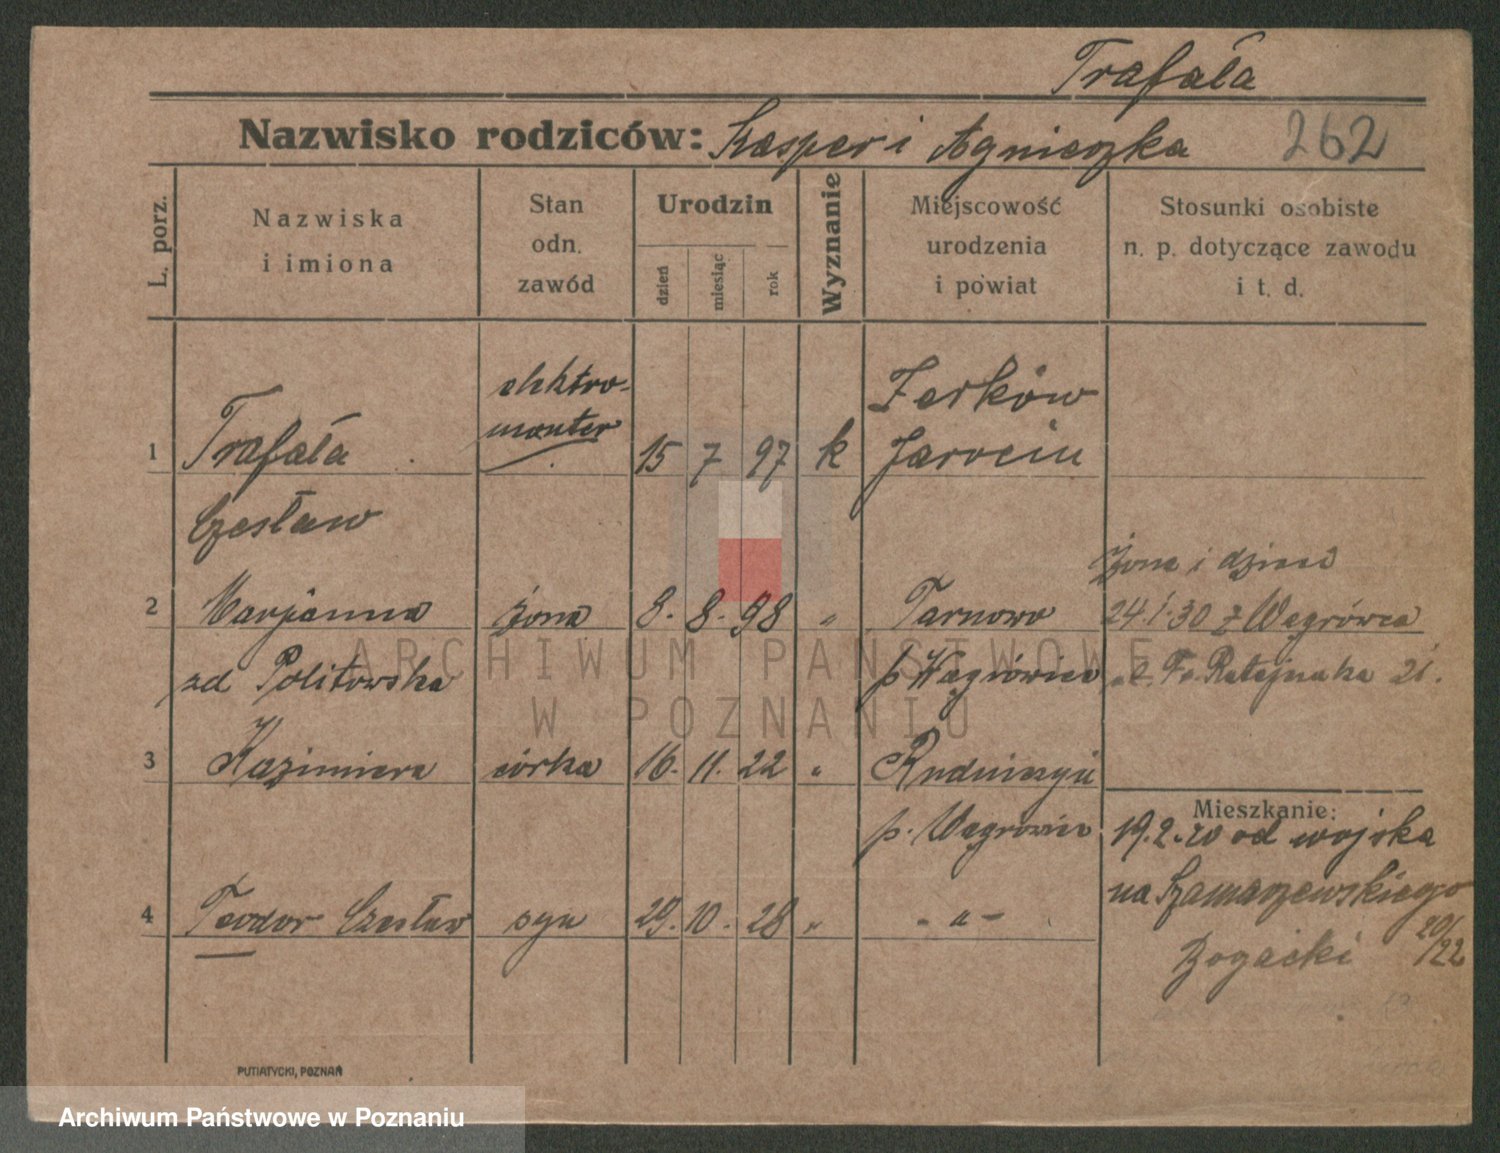 Trafała
Nazwisko rodziców: Kasper i Agnieszka 262
L. porz.
Nazwiska
i imiona
Stan
odn.
zawód
Urodzin
dzień
miesiąc
rok
Wyznanie
Miejscowość
urodzenia
i powiat
Stosunki osobiste
n. p. dotyczące zawodu
i t. d.
elektro-
monter
Żerków
1 Trafała 15 7 97 k Jarocin
Czesław
Żona i dzieci
2 Marjanna żona 8. 8. 98 " Tarnowo 24.1.30 z Wągrówca
zd Politowska p Wągrówiec Fr. Ratajczaka 21.
3 Kazimiera córka 16. 11. 22 "
p. Wągrowiec
Mieszkanie:
19.2.20 od wojska
na Szamarzewskiego
20/22
4 Teodor Czesław syn 29. 10. 28 " - " -
Bogacki
PUTIATYCKI, POZNAŃ
ARCHIWUM PAŃSTWOWE
W POZNANIU
Archiwum Państwowe w Poznaniu